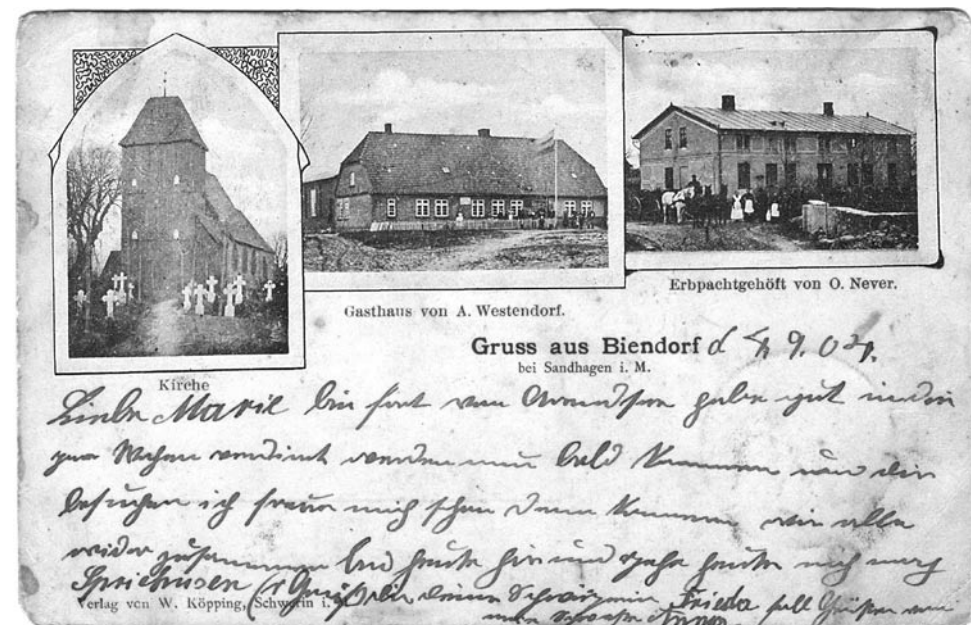 Kirche
Gasthaus von A. Westendorf.
Erbpachtgehöft von O. Never.
Gruss aus Biendorf d 4 9. 04.
bei Sandhagen i. M.
Liebe Marie bin hier von habe gut in den
Wochen verdient werden nun bald kommen und dich
besuchen ich freue mich schon dann kommen wir alle
wider zusammen bin heute hir und gehe heute noch nach
deine Schwägerin Frieda soll Grüßen von
meine Schwester Anna
Verlag von W. Köpping, Schwerin i. M.